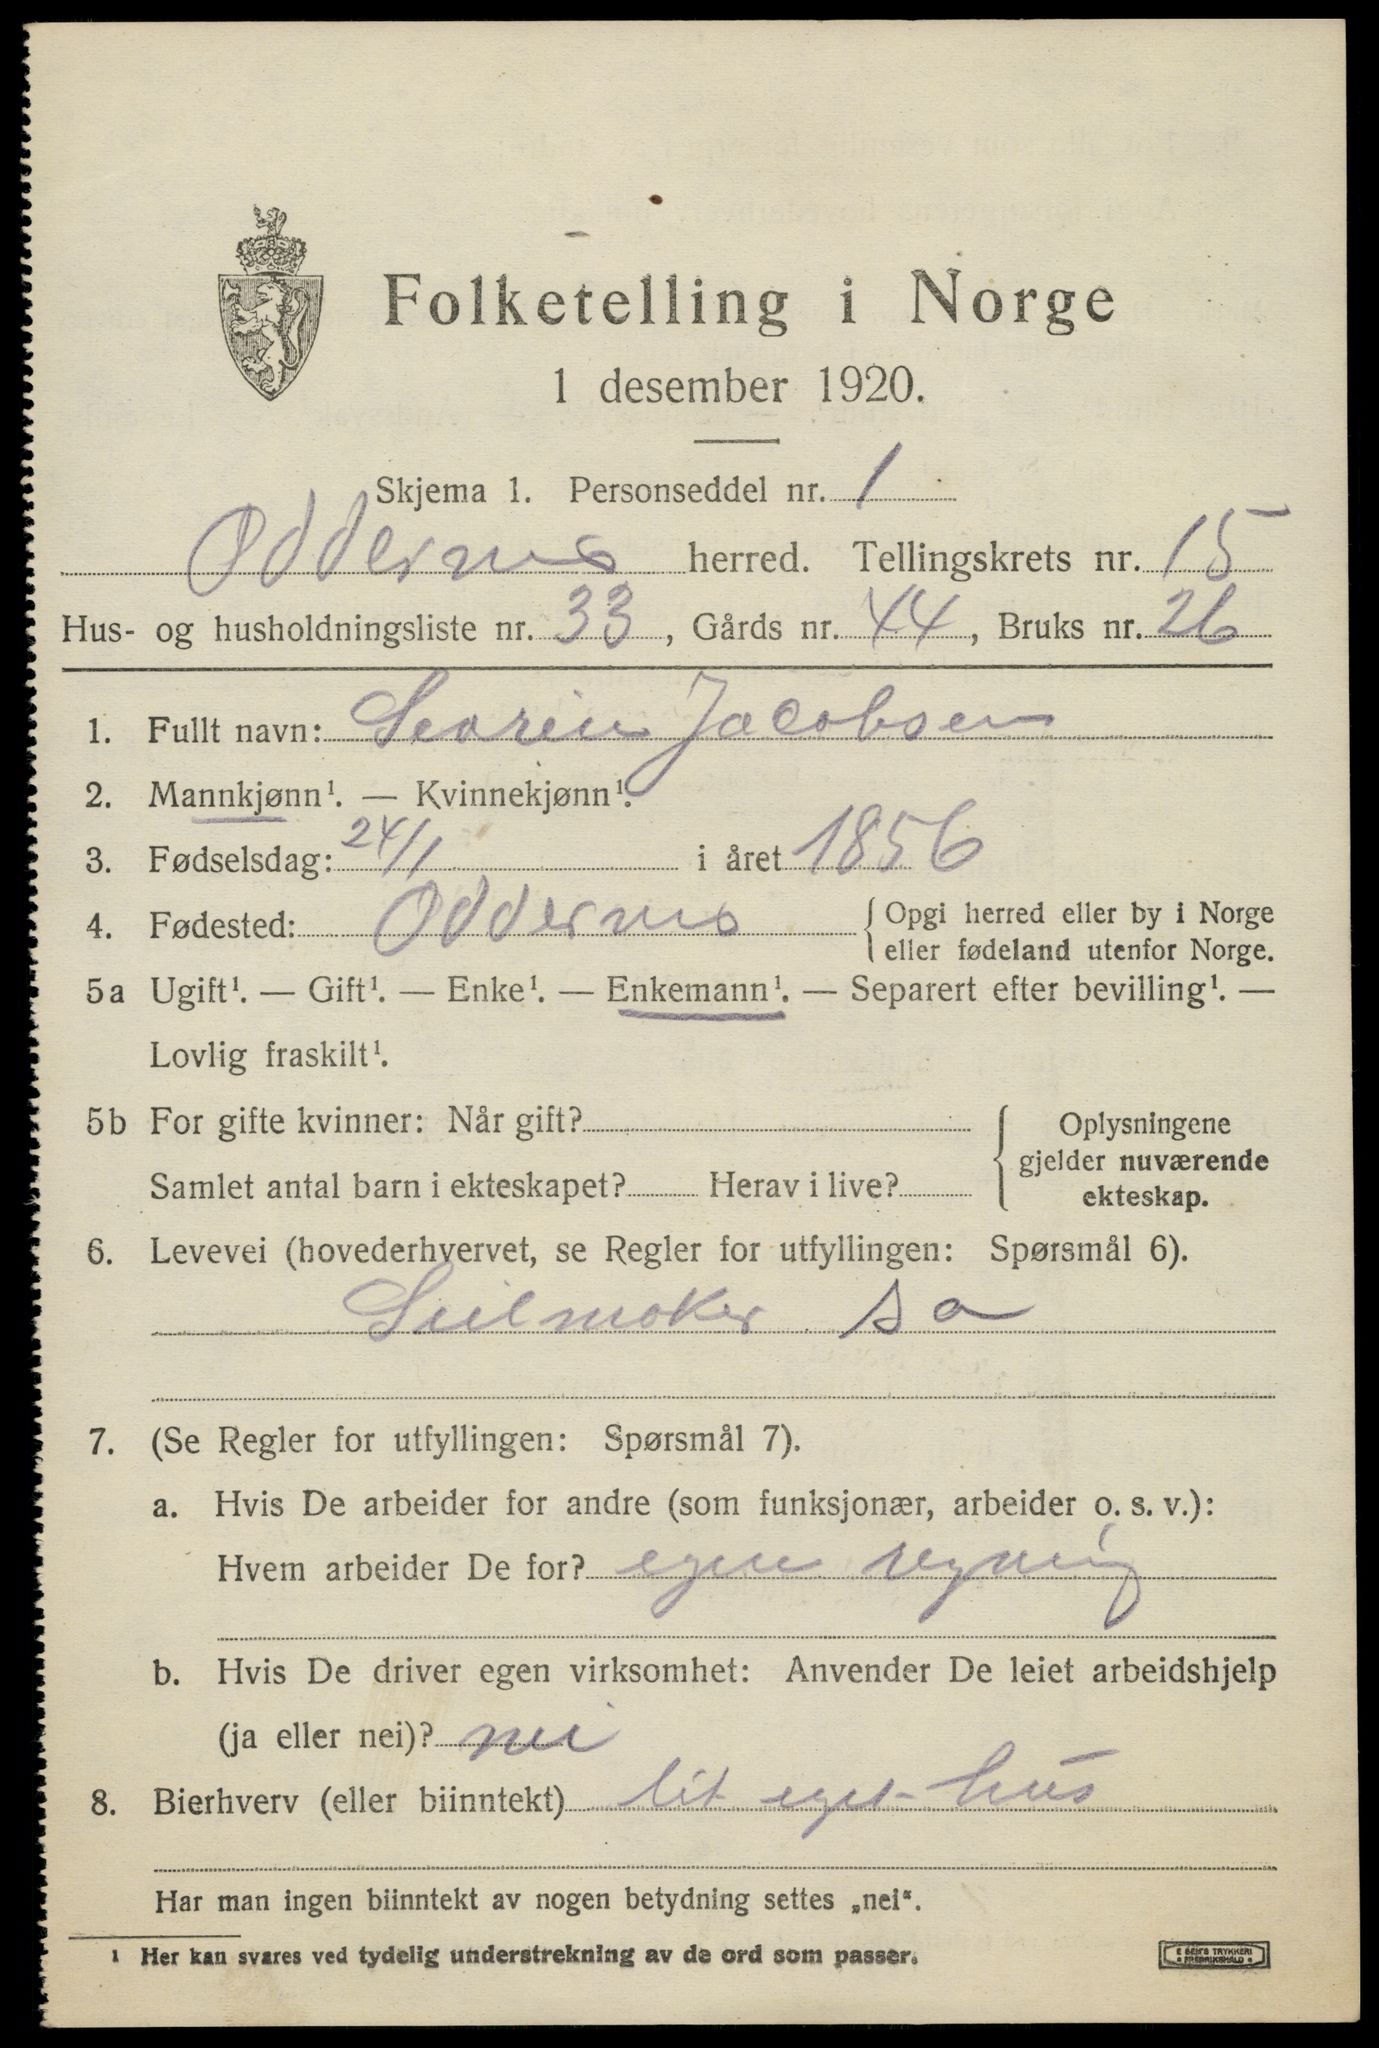 Folketelling i Norge
1 desember 1920.
Skjema 1. Personseddel nr. 1
Oddernes herred. Tellingskrets nr. 15
Hus- og husholdningsliste nr. 33, Gårds nr. 44, Bruks nr. 26
1. Fullt navn: Seøren Jacobsen
2. Mannkjønn¹. — Kvinnekjønn¹.
3. Fødselsdag: 24/1 i året 1856
4. Fødested: Oddernes { Opgi herred eller by i Norge
eller fødeland utenfor Norge.
5a Ugift¹. — Gift¹. — Enke¹. — Enkemann¹. — Separert efter bevilling¹. —
Lovlig fraskilt¹.
5b For gifte kvinner: Når gift? { Oplysningene
gjelder nuværende
Samlet antal barn i ekteskapet? Herav i live? ekteskap.
6. Levevei (hovederhvervet, se Regler for utfyllingen: Spørsmål 6).
Seilmaker sa
7. (Se Regler for utfyllingen: Spørsmål 7).
a. Hvis De arbeider for andre (som funksjonær, arbeider o. s. v.):
Hvem arbeider De for? egen regning
b. Hvis De driver egen virksomhet: Anvender De leiet arbeidshjelp
(ja eller nei)? nei
8. Bierhverv (eller biinntekt) lit eget hus
Har man ingen biinntekt av nogen betydning settes „nei“.
¹ Her kan svares ved tydelig understrekning av de ord som passer.
E SEM'S TRYKKERI
FREDRIKSHALD